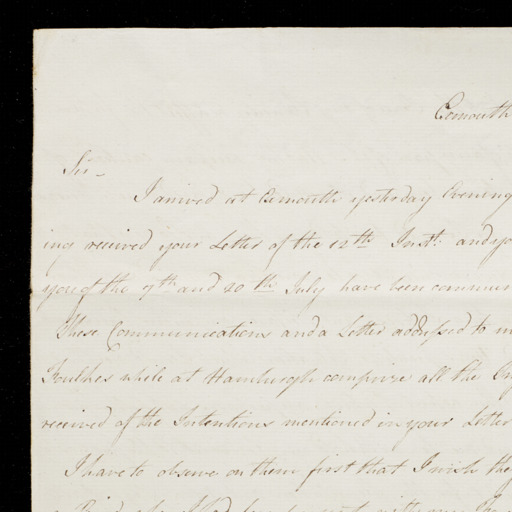 Exmouth
Sir -
I arived at Exmouth yesterday Evening
ing received your Letter of the 12th Inst. and yo
you of the 7th and 20th July have been commun
These Communications and a Letter addressed to m
Foulkes while at Hamburgh comprize all the In
received of the Intentions mentioned in your Letter
I have to observe on them first that I wish the